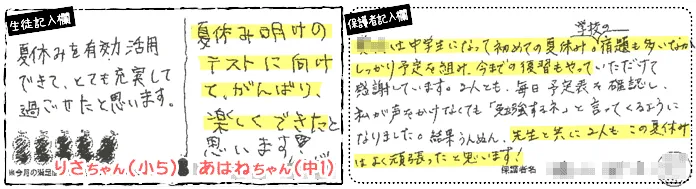 生徒記入欄
夏休みを有効活用
できて、とても充実して
過ごせたと思います。
※今月の満足
りさちゃん(小5)
夏休み明けの
テストに向け
て、がんばり、
楽しくできたと
思います
あはねちゃん(中1)
保護者記入欄
学校の
は中学生になって初めての夏休み。宿題も多いなか
しっかり予定を組み、今までの復習もやっていただけて
感謝しています。2人とも、毎日予定表を確認し、
私が声をかけなくても「勉強するネ」と言ってくるように
なりました。結果うんぬん、先生と共に2人もこの夏休み
はよく頑張ったと思います!
保護者名